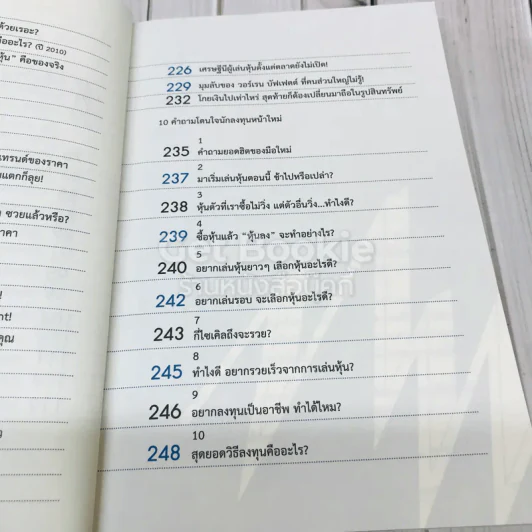 ด้วยเรอะ?
คืออะไร? (ปี 2010)
หุ้น” คือของจริง
เทรนด์ของราคา
แตกก็ลุย!
ซวยแล้วหรือ?
ราคา
nt!
คุณ
226 เศรษฐีนีผู้เล่นหุ้นตั้งแต่ตลาดยังไม่เปิด!
229 มุมลับของ วอร์เรน บัฟเฟตต์ ที่คนส่วนใหญ่ไม่รู้!
232 โกยเงินไปเท่าไหร่ สุดท้ายก็ต้องเปลี่ยนมาถือในรูปสินทรัพย์
10 คำถามโดนใจนักลงทุนหน้าใหม่
1
235 คำถามยอดฮิตของมือใหม่
2
237 มาเริ่มเล่นหุ้นตอนนี้ ช้าไปหรือเปล่า?
3
238 หุ้นตัวที่เราซื้อไม่วิ่ง แต่ตัวอื่นวิ่ง...ทำไงดี?
4
239 ซื้อหุ้นแล้ว “หุ้นลง” จะทำอย่างไร?
5
240 อยากเล่นหุ้นยาวๆ เลือกหุ้นอะไรดี?
6
242 อยากเล่นรอบ จะเลือกหุ้นอะไรดี?
7
243 กี่ไซเคิลถึงจะรวย?
8
245 ทำไงดี อยากรวยเร็วจากการเล่นหุ้น?
9
246 อยากลงทุนเป็นอาชีพ ทำได้ไหม?
10
248 สุดยอดวิธีลงทุนคืออะไร?
Got Bookie
ร้านหนังสือบุ๊กกี้